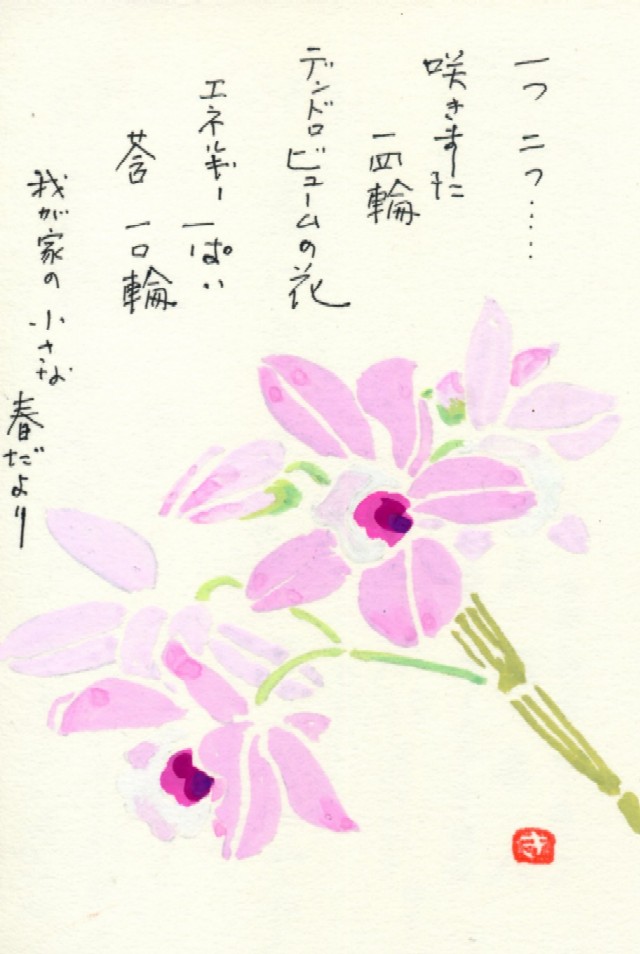 一つ 二つ……
咲きました
一四輪
デンドロビュームの花
エネルギー 一ぱい
蕾 一〇輪
我が家の 小さな 春だより
き